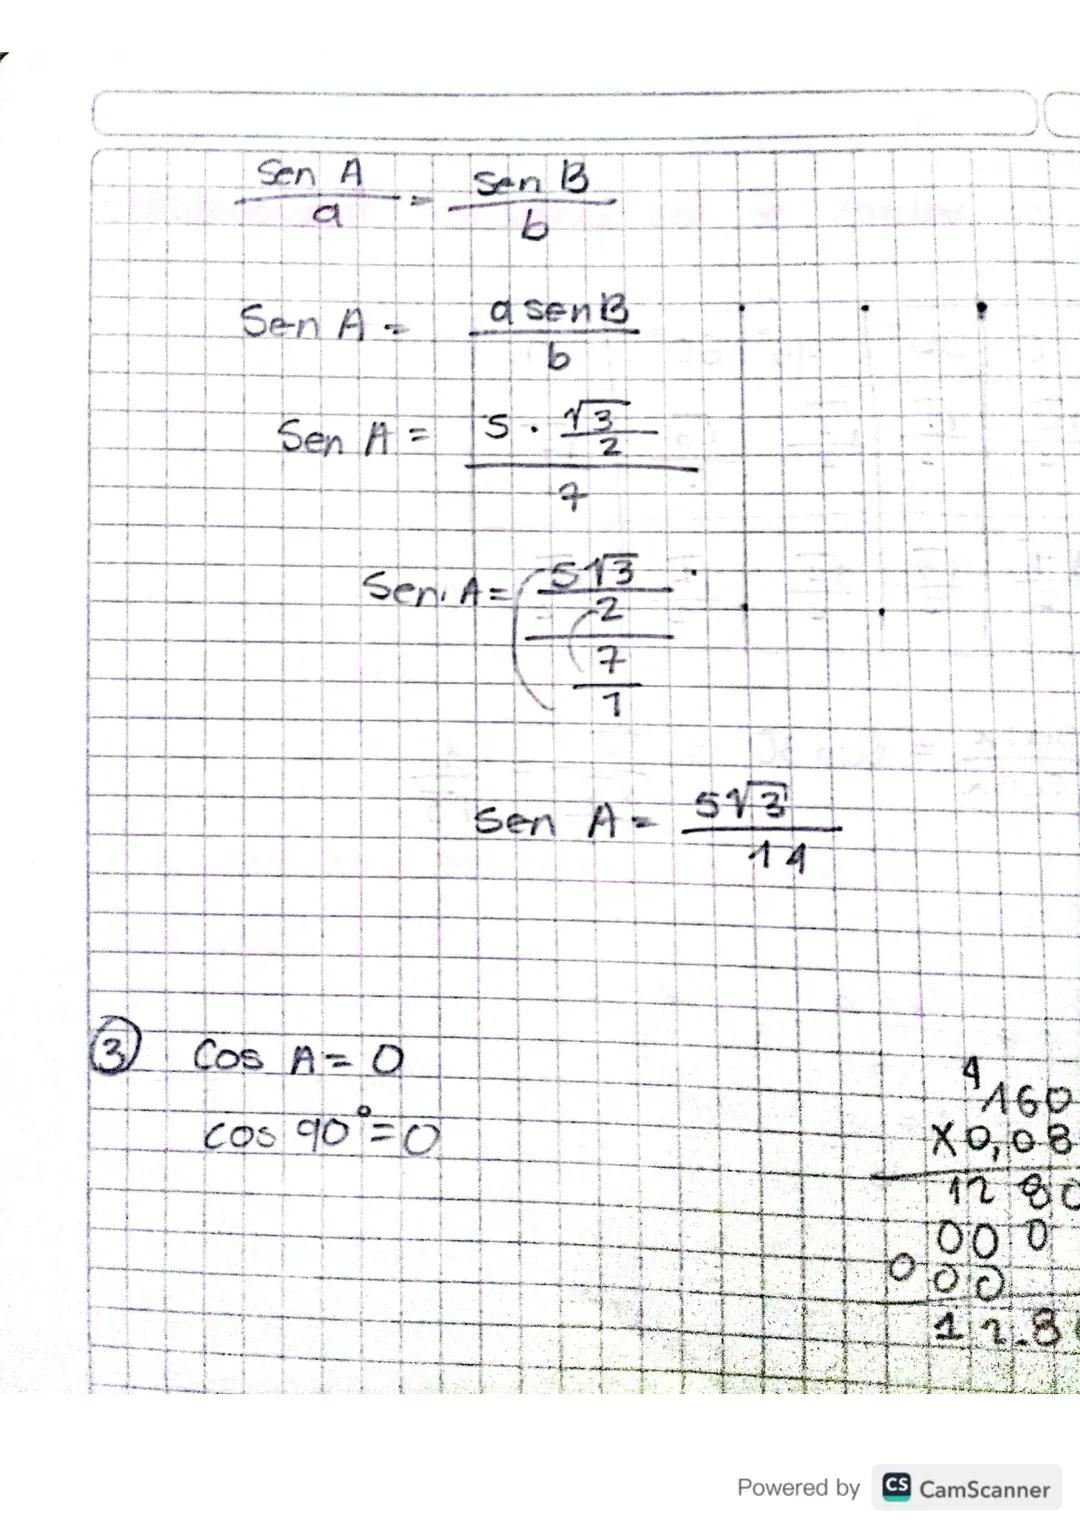 Sen A / a = Sen B / b
Sen A = a sen B / b
Sen A = 5 · √3/2 / 7
Sen A = 5√3/2 / 7/1
Sen A = 5√3 / 14
③ Cos A = 0
cos 90° = 0
4
160
X 0,08
1280
000
000
12.8
Powered by CS CamScanner